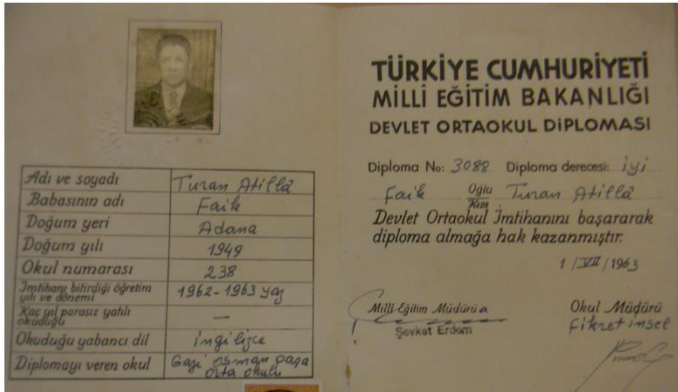 Adı ve soyadı Turan Atillâ
Babasının adı Faik
Doğum yeri Adana
Doğum yılı 1949
Okul numarası 238
İmtihanı bitirdiği öğretim yılı ve dönemi 1962-1963 yaz
Kaç yıl parasız yatılı okuduğu —
Okuduğu yabancı dil ingilizce
Diplomayı veren okul Gazi osman paşa orta okulu
TÜRKİYE CUMHURİYETİ
MİLLİ EĞİTİM BAKANLIĞI
DEVLET ORTAOKUL DİPLOMASI
Diploma No: 3088 Diploma derecesi: iyi
Faik Oğlu Kızı Turan Atillâ
Devlet Ortaokul İmtihanını başararak
diploma almağa hak kazanmıştır.
1/VII/1963
Milli Eğitim Müdürü a
Şevket Erdem
Okul Müdürü
Fikret insel